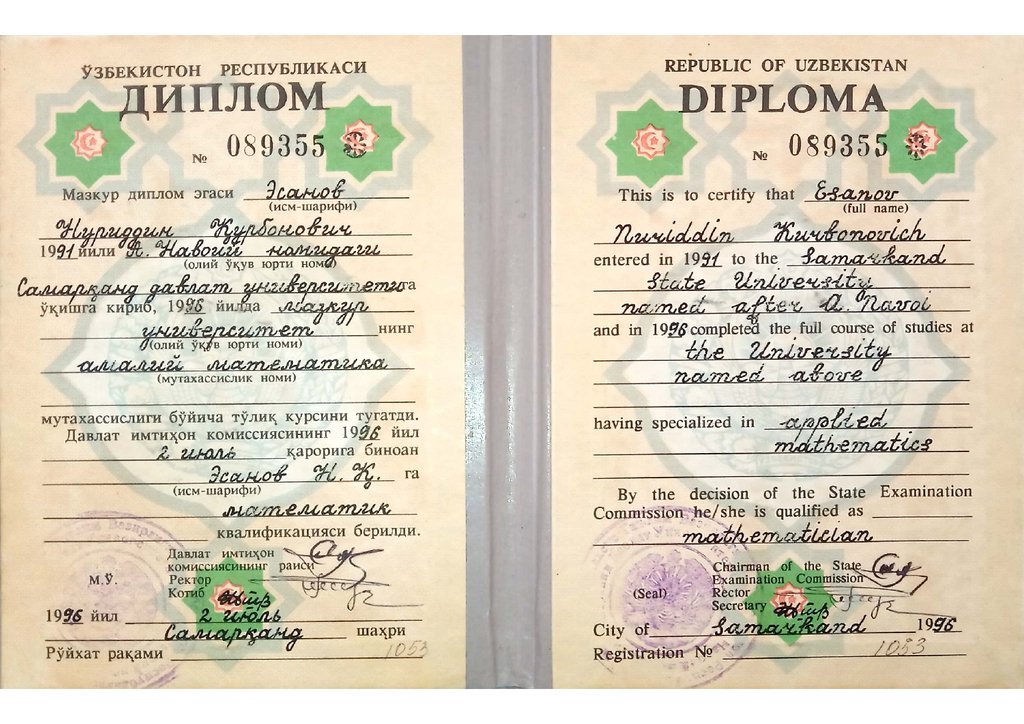 ЎЗБЕКИСТОН РЕСПУБЛИКАСИ
ДИПЛОМ
№ 089355
Мазкур диплом эгаси Эсанов
(исм-шарифи)
Нуриддин Қурбонович
1991 йили А. Навоий номидаги
(олий ўқув юрти номи)
Самарқанд давлат университетига
ўқишга кириб, 1996 йилда мазкур
университет нинг
(олий ўқув юрти номи)
амалий математика
(мутахассислик номи)
мутахассислиги бўйича тўлиқ курсини тугатди.
Давлат имтиҳон комиссиясининг 1996 йил
2 июль қарорига биноан
Эсанов Н. Қ. га
(исм-шарифи)
математик
квалификацияси берилди.
Давлат имтиҳон
комиссиясининг раиси
М.Ў. Ректор
Котиб
1996 йил 2 июль
Самарқанд шаҳри
Рўйхат рақами 1053
REPUBLIC OF UZBEKISTAN
DIPLOMA
№ 089355
This is to certify that Esanov
(full name)
Nuriddin Kurbonovich
entered in 1991 to the Samarkand
State University
named after A. Navoi
and in 1996 completed the full course of studies at
the University
named above
having specialized in applied
mathematics
By the decision of the State Examination
Commission he/she is qualified as
mathematician
Chairman of the State
Examination Commission
(Seal) Rector
Secretary
City of Samarkand 1996
Registration № 1053